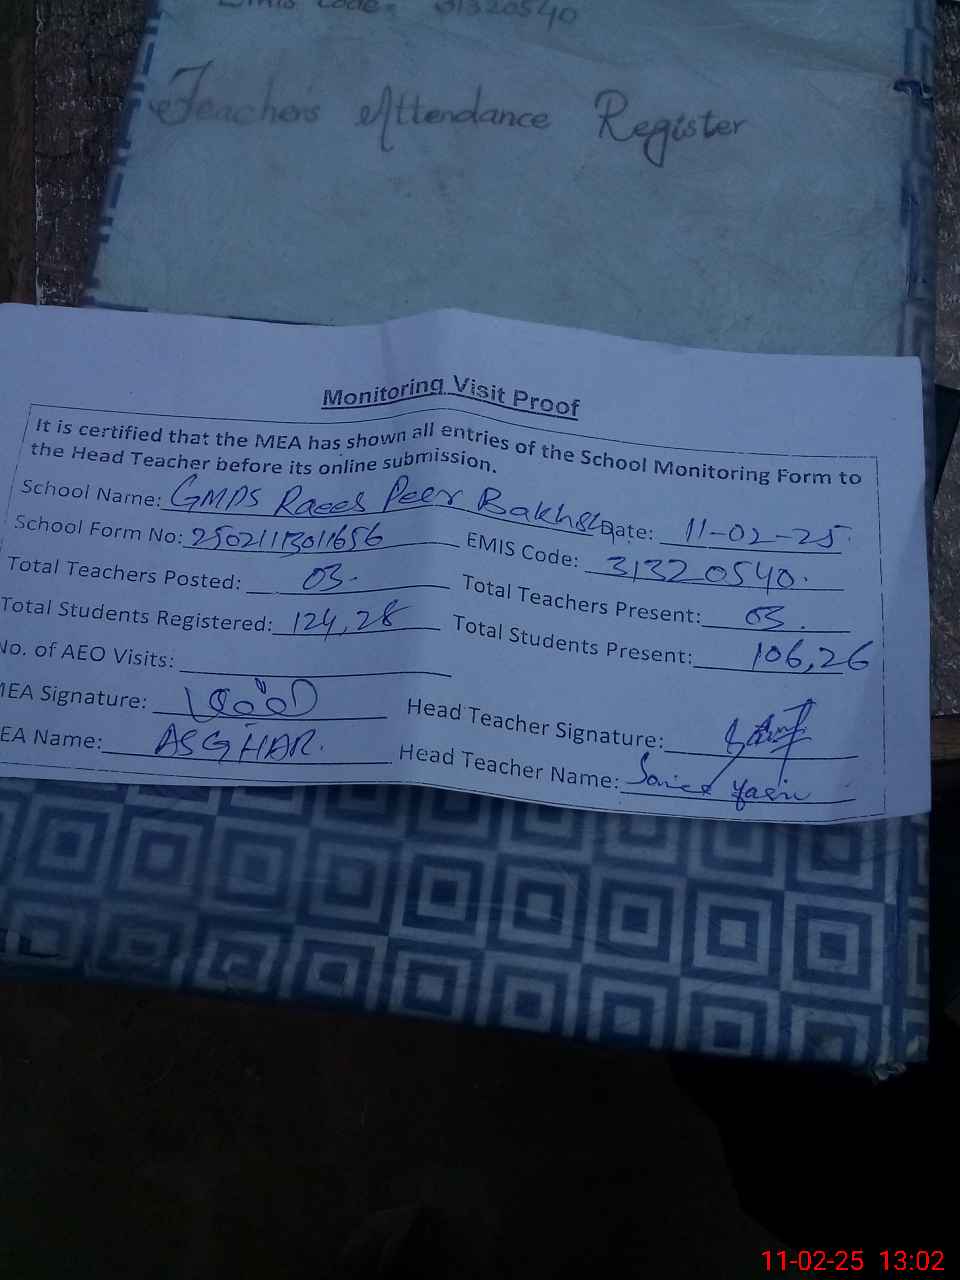 EMIS Code: 31320540
Teachers Attendance Register
Monitoring Visit Proof
It is certified that the MEA has shown all entries of the School Monitoring Form to
the Head Teacher before its online submission.
School Name: GMPS Raees Peer Bakhsh Date: 11-02-25.
School Form No: EMIS Code: 31320540.
Total Teachers Posted: 03. Total Teachers Present: 03.
Total Students Registered: 124,28 Total Students Present: 106,26
No. of AEO Visits:
MEA Signature: Head Teacher Signature:
EA Name: ASGHAR. Head Teacher Name:
11-02-25 13:02